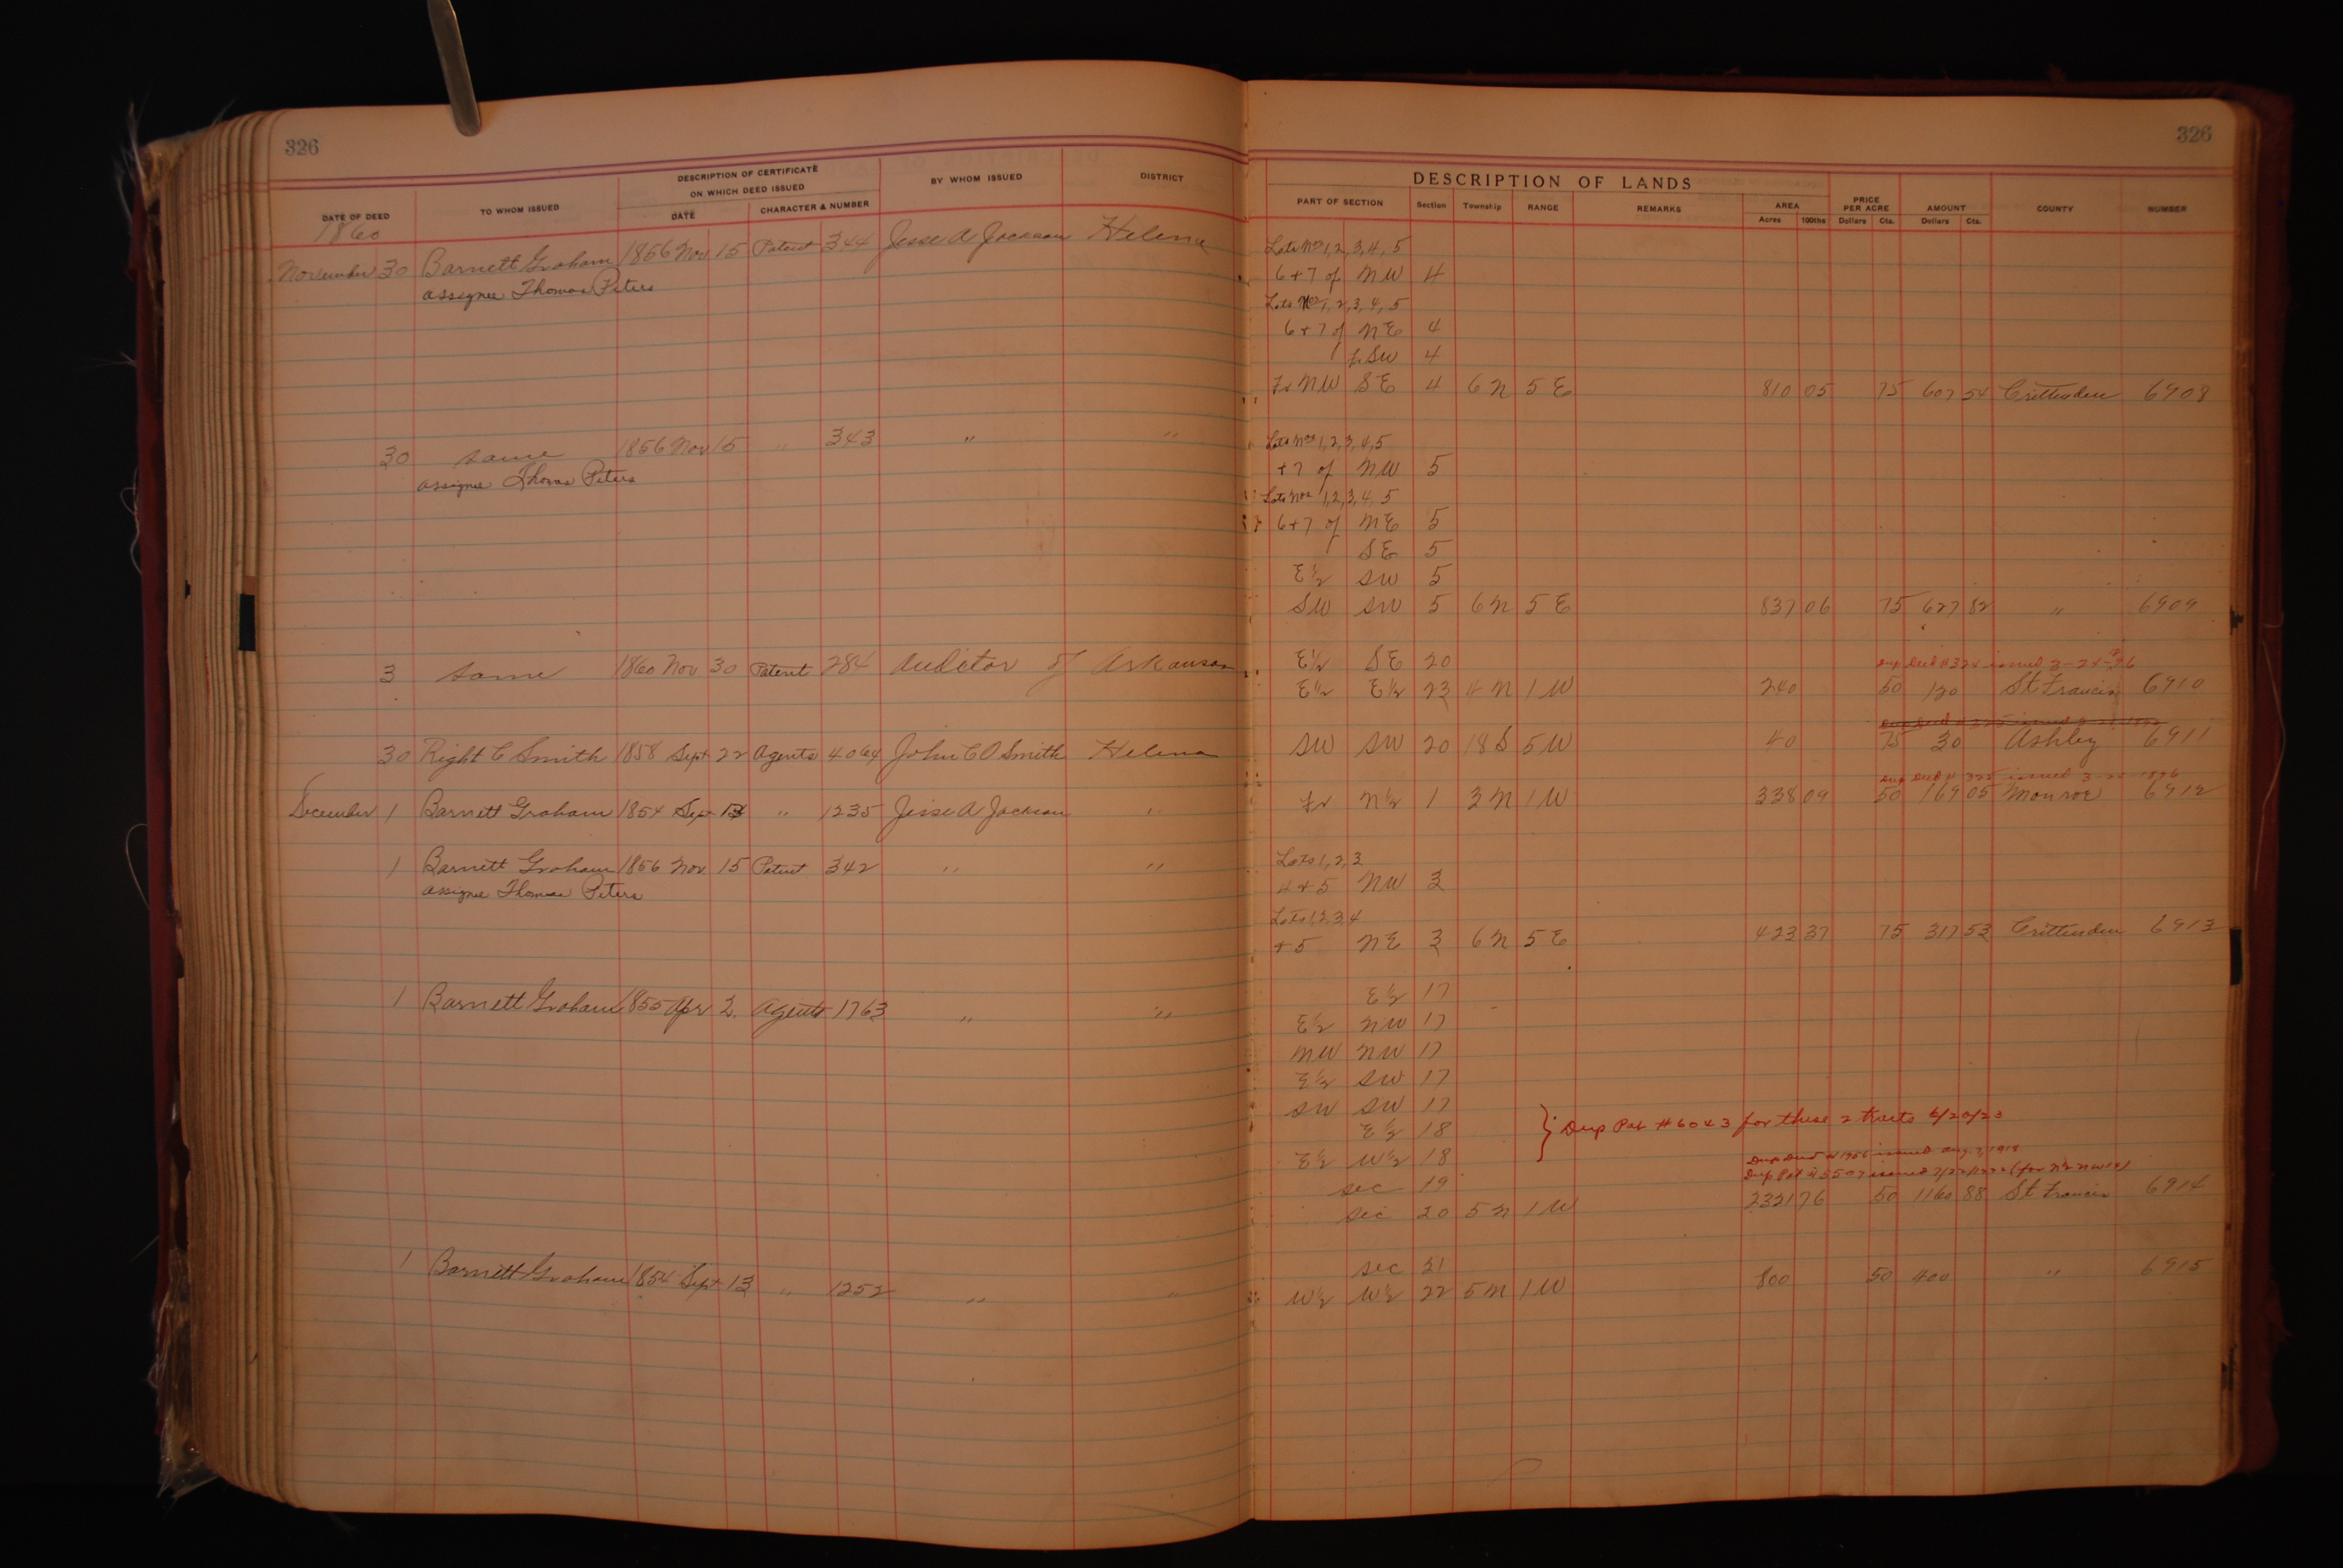 326
326
DESCRIPTION OF CERTIFICATE
ON WHICH DEED ISSUED
DATE OF DEED TO WHOM ISSUED DATE CHARACTER & NUMBER BY WHOM ISSUED DISTRICT
DESCRIPTION OF LANDS
PART OF SECTION Section Township RANGE REMARKS AREA Acres 100ths PRICE PER ACRE Dollars Cts. AMOUNT Dollars Cts. COUNTY NUMBER
1860
November 30 Barnett Graham 1856 Nov 15 Patent 344 Jesse A Jackson Helena
assignee Thomas Peters
Lots Nos 1, 2, 3, 4, 5
6 + 7 of NW 4
Lots Nos 1, 2, 3, 4, 5
6 + 7 of NE 4
fr SW 4
Fr NW SE 4 6 N 5 E 810 05 75 607 54 Crittenden 6908
30 same 1856 Nov 15 " 343 " "
assignee Thomas Peters
Lots Nos 1, 2, 3, 4, 5
+ 7 of NW 5
Lots Nos 1, 2, 3, 4, 5
6 + 7 of NE 5
SE 5
E½ SW 5
SW SW 5 6 N 5 E 837 06 75 627 82 " 6909
3 same 1860 Nov 30 Patent 284 Auditor of Arkansas
E½ SE 20 Dup Deed # 324 issued 3-24-96
E½ E½ 23 4 N 1 W 240 50 120 St Francis 6910
30 Right C Smith 1858 Sept 22 Agents 4064 John C O Smith Helena
SW SW 20 18 S 5 W 40 75 30 Ashley 6911
Dup Deed # 325 issued 3-25-1896
December 1 Barnett Graham 1854 Sept 13 " 1235 Jesse A Jackson "
Fr N½ 1 3 N 1 W 338 09 50 169 05 Monroe 6912
1 Barnett Graham 1856 Nov. 15 Patent 342 " "
assignee Thomas Peters
Lots 1, 2, 3
4 + 5 NW 3
Lots 1, 2, 3, 4
+ 5 NE 3 6 N 5 E 423 37 75 317 53 Crittenden 6913
1 Barnett Graham 1855 Apr 2. Agents 1763 " "
E½ 17
E½ NW 17
NW NW 17
E½ SW 17
SW SW 17
E½ 18
} Dup Pat # 6043 for these 2 tracts 6/20/23
E½ W½ 18
Dup Deed # 1956 issued Aug. 7, 1918
sec 19
sec 20 5 N 1 W 2321 76 50 1160 88 St Francis 6914
1 Barnett Graham 1854 Sept 13 " 1252 " "
sec 21
W½ W½ 22 5 N 1 W 800 50 400 " 6915